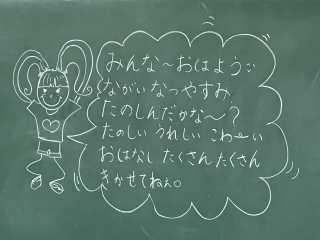 みんな～おはよう！！
ながいなつやすみ
たのしんだかな～？
たのしい うれしい こわ～い
おはなし たくさんたくさん
きかせてねぇ。